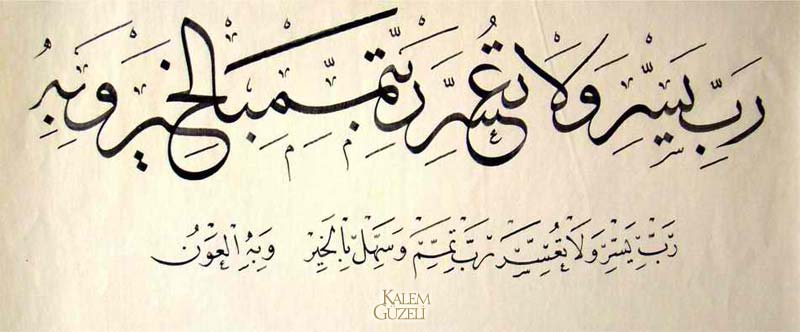 رَبِّ يَسِّرْ وَلَا تُعَسِّرْ رَبِّ تَمِّمْ بِالْخَيْرِ وَبِهِ
رَبِّ يَسِّرْ وَلَا تُعَسِّرْ رَبِّ تَمِّمْ وَسَهِّلْ بِالْخَيْرِ وَبِهِ الْعَوْنُ
KALEM
GÜZELİ